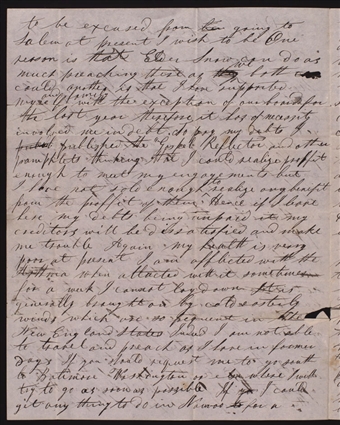 to be excused from going to
Salem at present I wish to be One
reason is that Elder Snow can do as
much preaching there as we both
could another is that I have supported
myself and family with the exception of one board for
the last year therefore it has of necessity
involved me in debt to pay my debts I
published the Gospel Reflector and other
pamphlets thinking that I could realize proffit
enough to meet my engagements but
I have not sold enough to realize any benefit
from the proffit of them Hence if I leave
here my debts being unpaid it my
creditors will be dissatisfied and make
me trouble Again my health is very
poor at present I am afflicted with the
when attacted with it sometimes
for a week I cannot lay down
generally brought on by cold easterly
winds which are so frequent in
New England States I am not able
to travel and preach as I have in former
Days If you should request me to go south
to Baltimore Washington or else where I will
try to go as soon as possible If I could
get any thing to do in Nauvoo for a